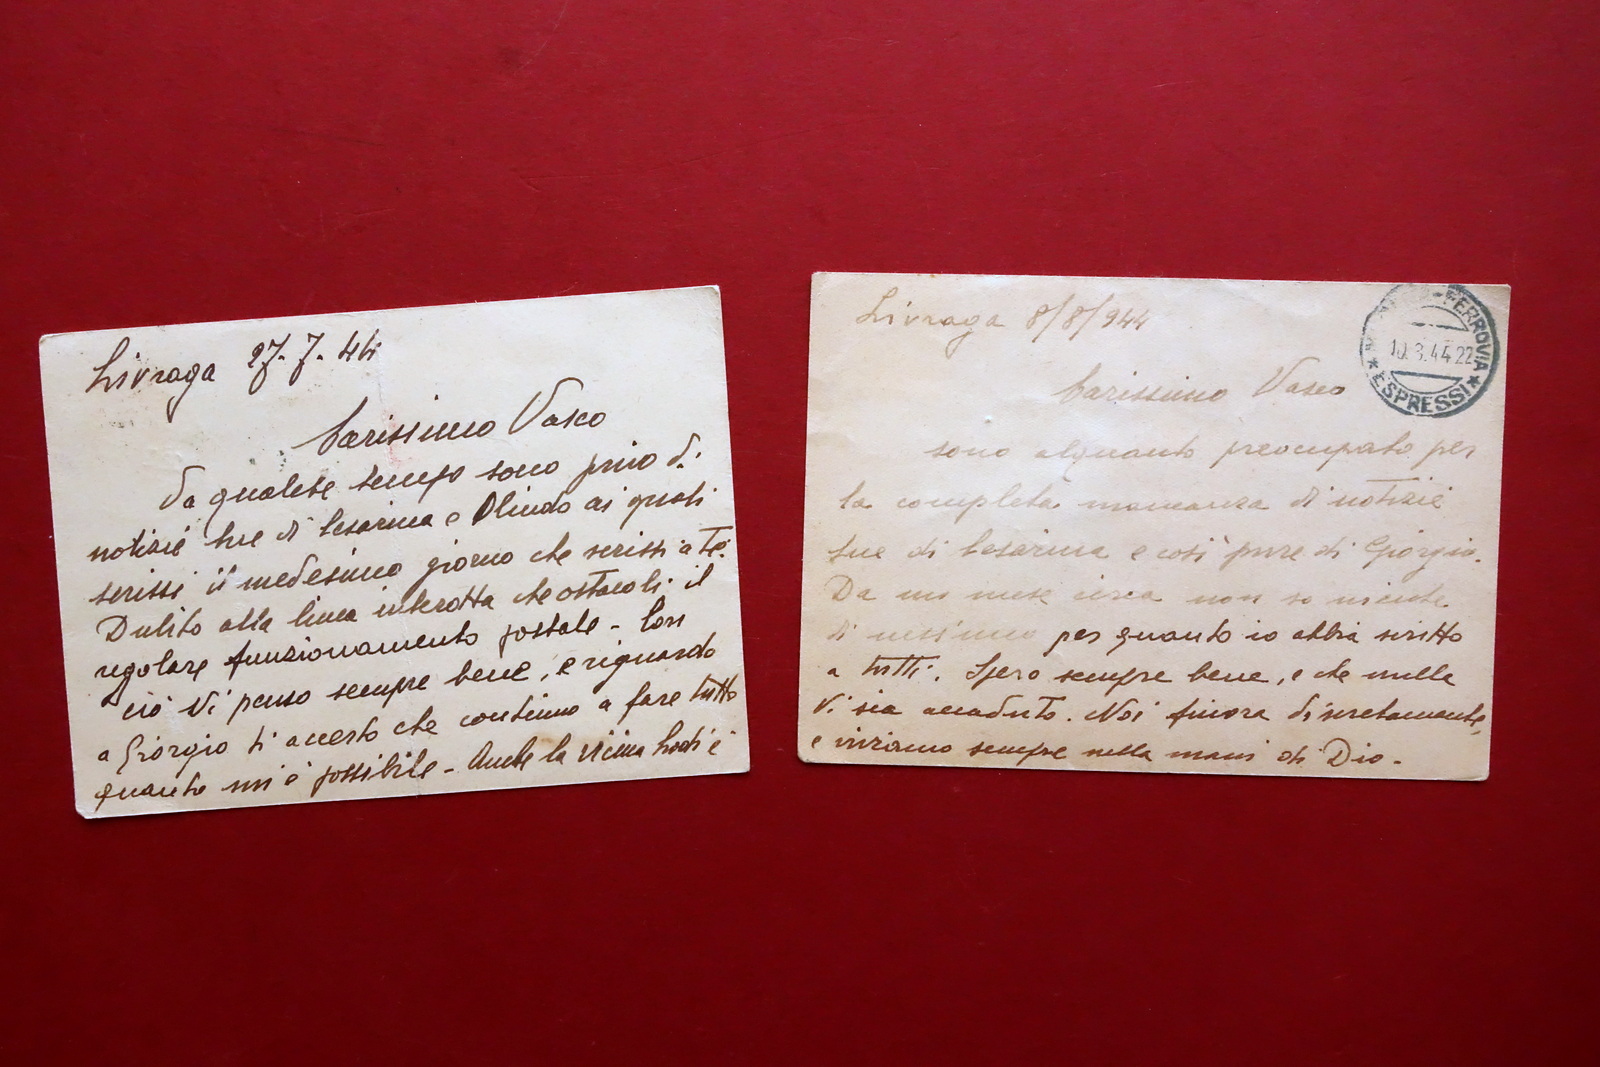 Livraga 27-7-44
Carissimo Vasco
Da qualche tempo sono privo di
notizie tue di Cesarina e Olindo ai quali
scrissi il medesimo giorno che scrissi a Te.
Dubito alla linea interotta che ostacoli il
regolare funzionamento postale - Con
ciò Vi penso sempre bene, e riguardo
a Giorgio ti accerto che continuo a fare tutto
quanto mi è possibile - Anche la vicina Lodi è
Livraga 8/8/944
Carissimo Vasco
sono alquanto preocupato per
la completa mancanza di notizie
tue di Cesarina e così pure di Giorgio.
Da un mese circa non so niente
di nessuno per quanto io abbia scritto
a tutti. Spero sempre bene, e che nulla
Vi sia accaduto. Noi finora discretamente,
e viviamo sempre nella mani di Dio -
FERROVIA
10.8.44 22
★ ESPRESSI ★